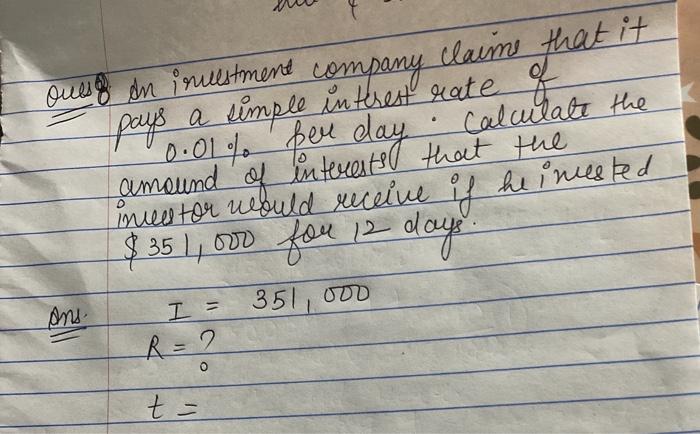 Ques 8 An investment company claims that it
pays a simple interest rate of
0.01 % per day. Calculate the
amound of interests that the
investor would receive if he invested
$ 351,000 for 12 days.
Ans. I = 351,000
R = ?
t =